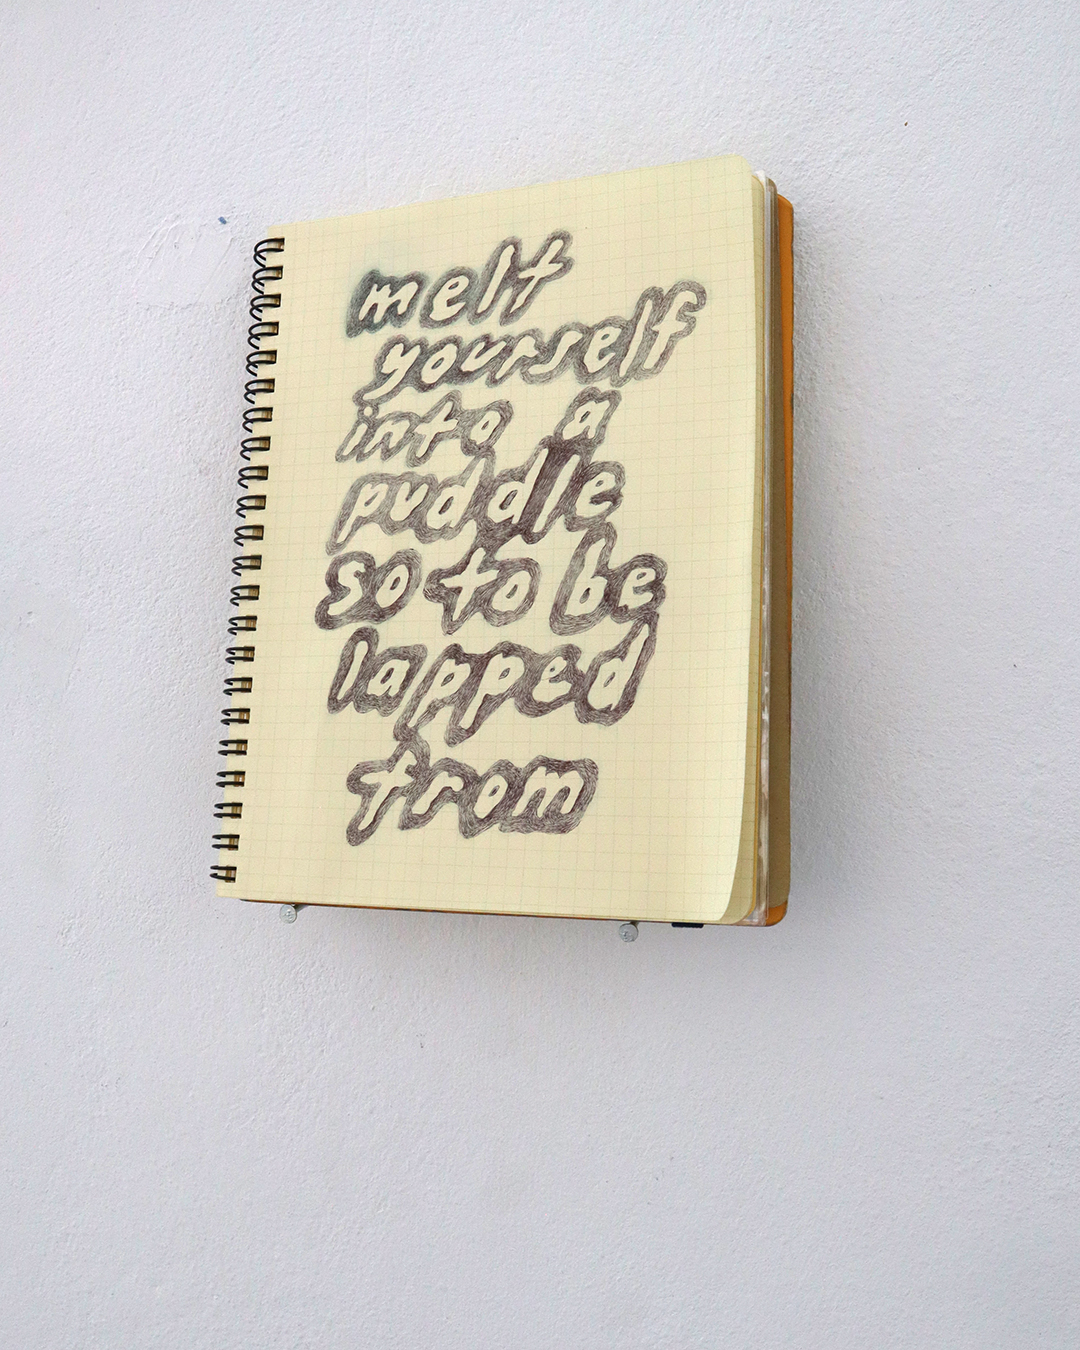 melt
yourself
into a
puddle
so to be
lapped
from